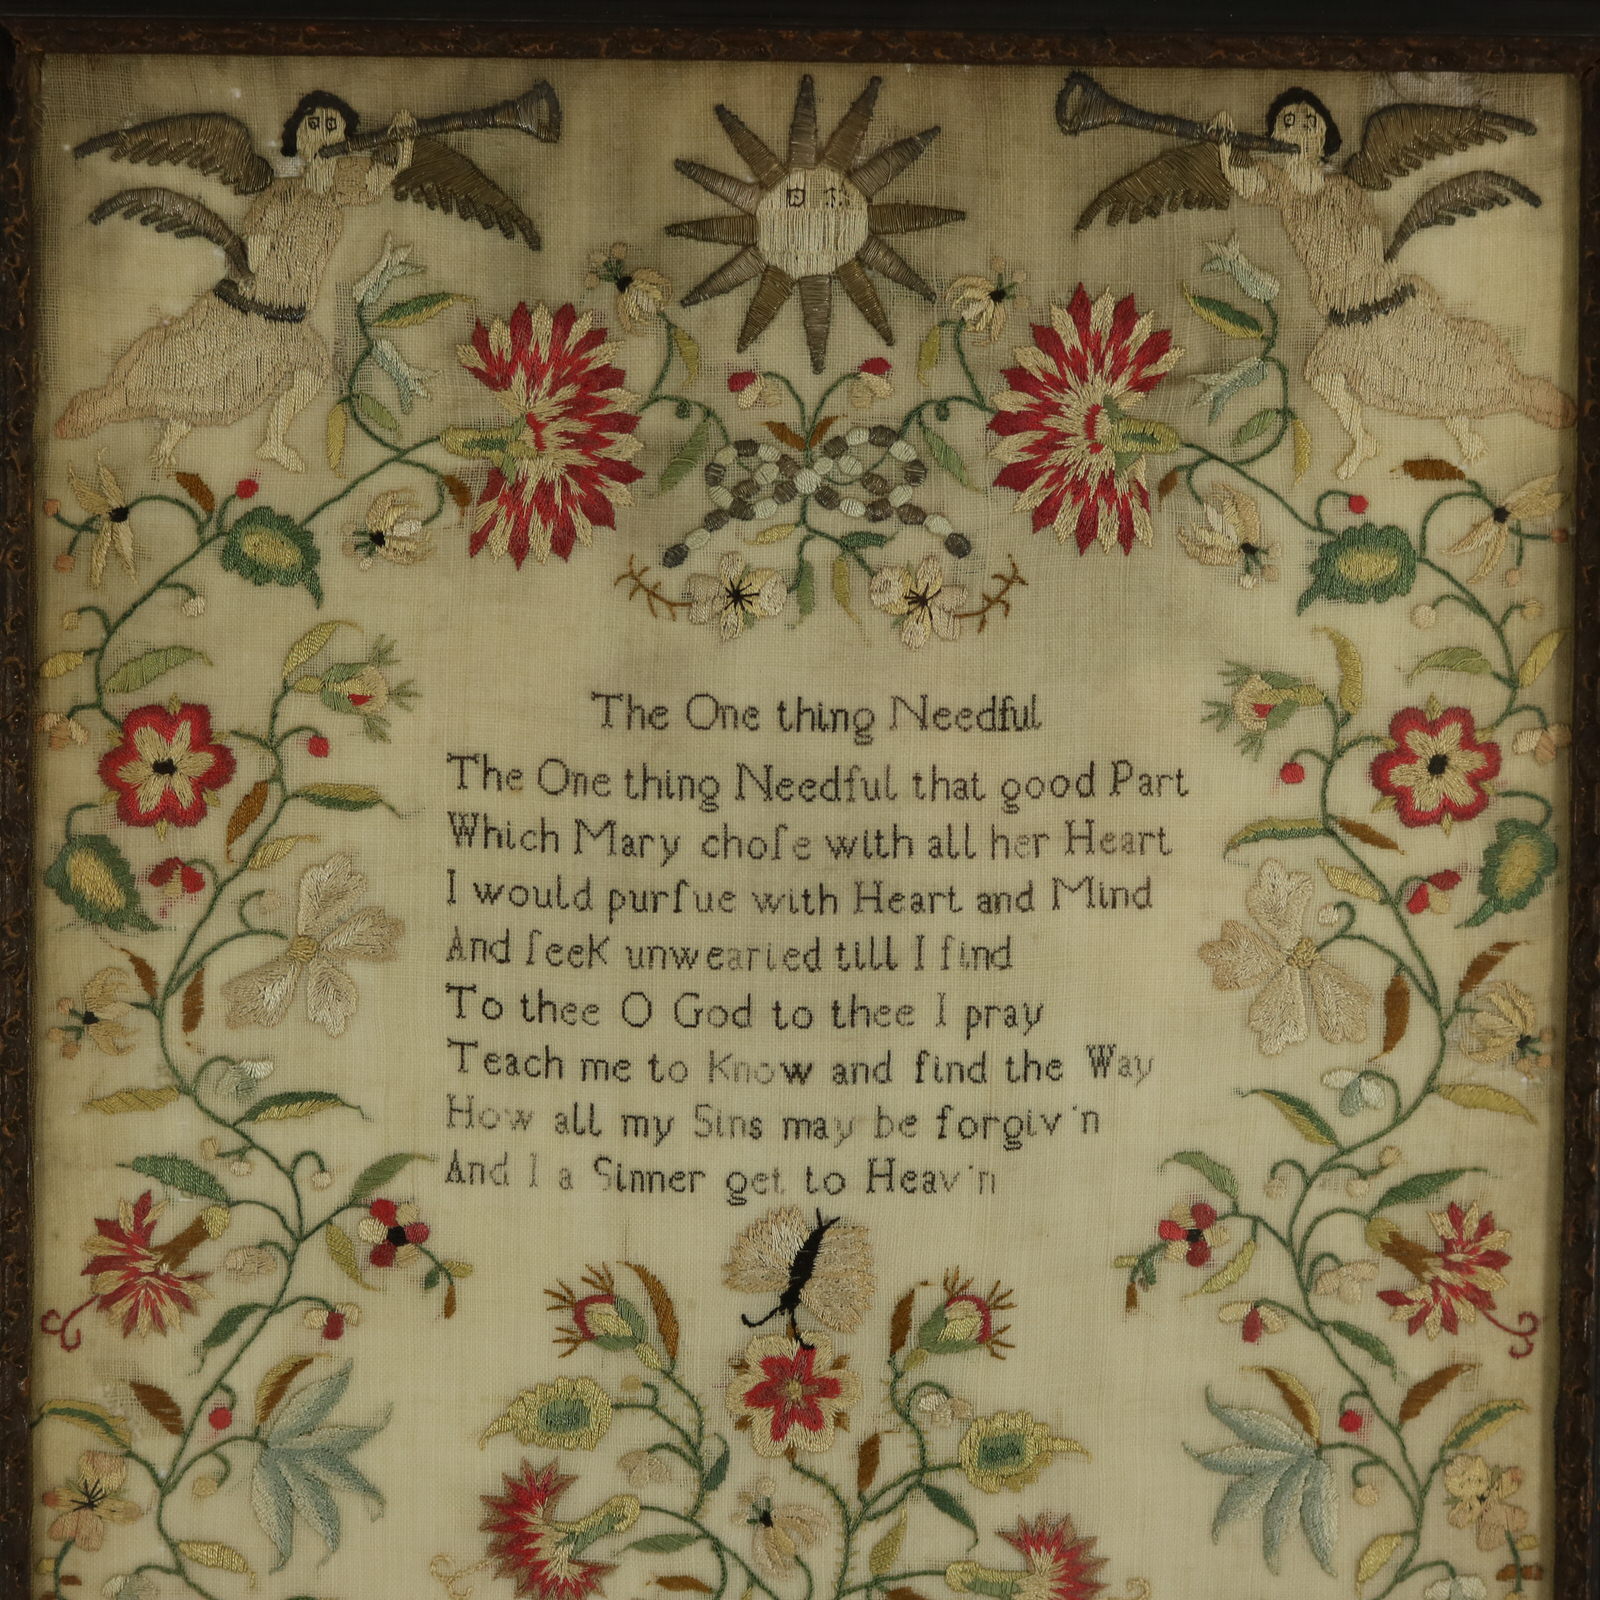 The One thing Needful
The One thing Needful that good Part
Which Mary choſe with all her Heart
I would purſue with Heart and Mind
And ſeek unwearied till I find
To thee O God to thee I pray
Teach me to Know and find the Way
How all my Sins may be forgiv'n
And I a Sinner get to Heav'n